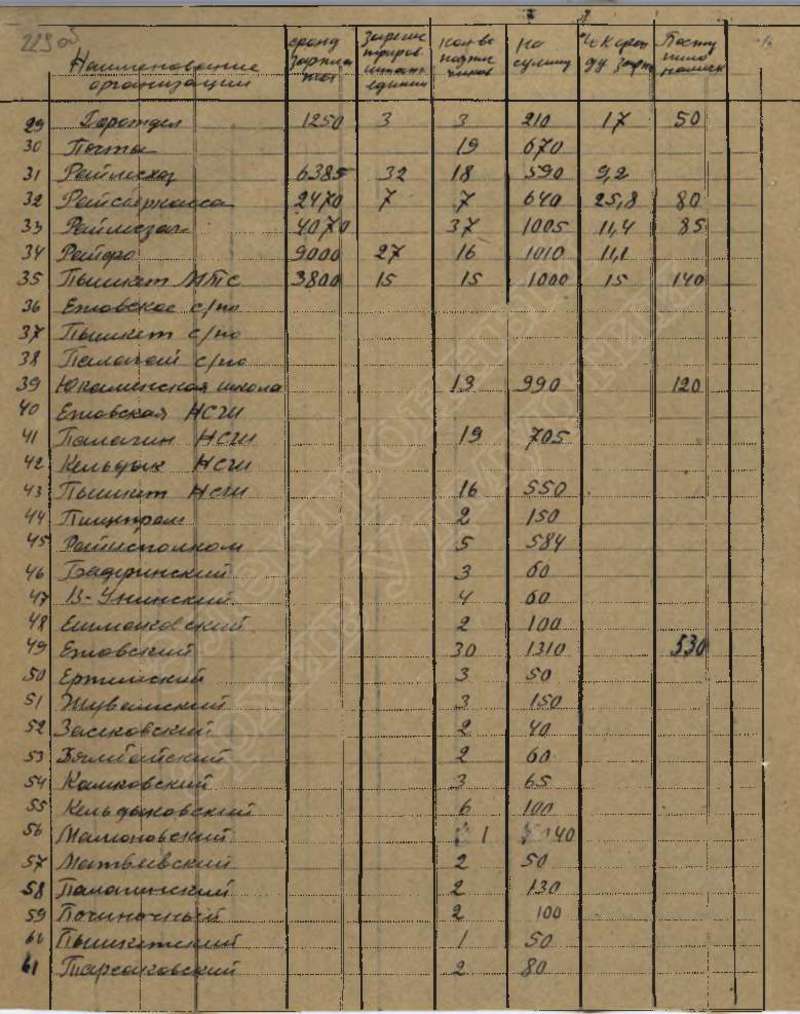 229 об
Наименование организации | фонд зарплаты | штатн. единиц | кол-во подписчиков | на сумму | % к фонду зарп | Поступило
29 Горотдел 1250 3 3 210 17 50
30 Почта 19 670
31 Райлесхоз 6385 32 18 590 9,2
32 Райсберкасса 2470 7 7 640 25,8 80
33 4070 37 1005 11,4 85
34 Райфо 9000 27 16 1010 11,1
35 Пышкет МТС 3800 15 15 1000 15 140
36 Ежовское с/по
37 Пышкет с/по
38 Палагай с/по
39 Юкаменская школа 13 990 120
40 Ежовская НСШ
41 Палагин НСШ 19 705
42 Кельдык НСШ
43 Пышкет НСШ 16 550
44 Пищепром 2 150
45 Райисполком 5 584
46 Бадеринский 3 60
47 В-Унинский 4 60
48 2 100
49 Ежовский 30 1310 530
50 3 50
51 Жувамский 3 150
52 Засековский 2 40
53 2 60
54 Камковский 3 65
55 Кельдыковский 6 100
56 Мамоновский 1 40
57 Матвеевский 2 50
58 Палагинский 2 130
59 Починочный 2 100
60 Пышкетский 1 50
61 Тарсаковский 2 80